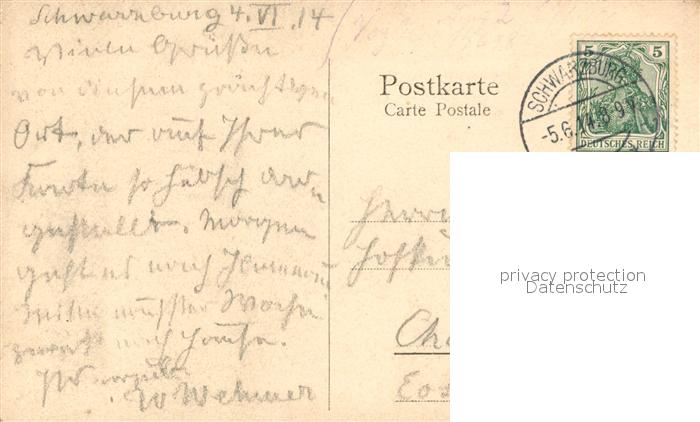 Schwarzburg 4. VI. 14
Vielen Grüße
von diesem prächtigen
Ort, der auf Ihrer
Karte so hübsch dar-
gestellt. Morgen
geht es nach Ilmenau
nächster Woche
nach Hause.
W Wehmer
Postkarte
Carte Postale
5 5
SCHWARZBURG
-5.6.14.8-9V.
DEUTSCHES REICH
Herrn
privacy protection
Datenschutz